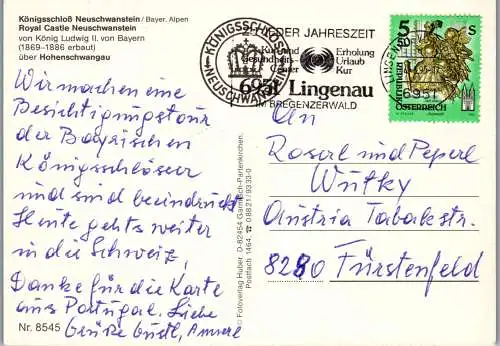 Königsschloß Neuschwanstein / Bayer. Alpen
Royal Castle Neuschwanstein
von König Ludwig II. von Bayern
(1869–1886 erbaut)
über Hohenschwangau
Wir machen eine
Besichtigungstour
der Bayrischen
Königsschlösser
und sind beeindruckt
Heute gehts weiter
in die Schweiz,
Danke für die Karte
aus Portugal. Liebe
Grüße Gustl, Annerl
Nr. 8545
© Fotoverlag Huber, D-82454 Garmisch-Partenkirchen,
Postfach 1464, ☎ 0 88 21/93 33-0
KÖNIGSSCHLOSS
NEUSCHWANSTEIN
DER JAHRESZEIT
Kur und
Gesundheits-
Erholung
Urlaub
Kur
6951 Lingenau
AM BREGENZERWALD
LINGENAU
6951
5
50
S
REPUBLIK
ÖSTERREICH
An
Roserl und Peperl
Wutky
Austria Tabakstr.
8280 Fürstenfeld